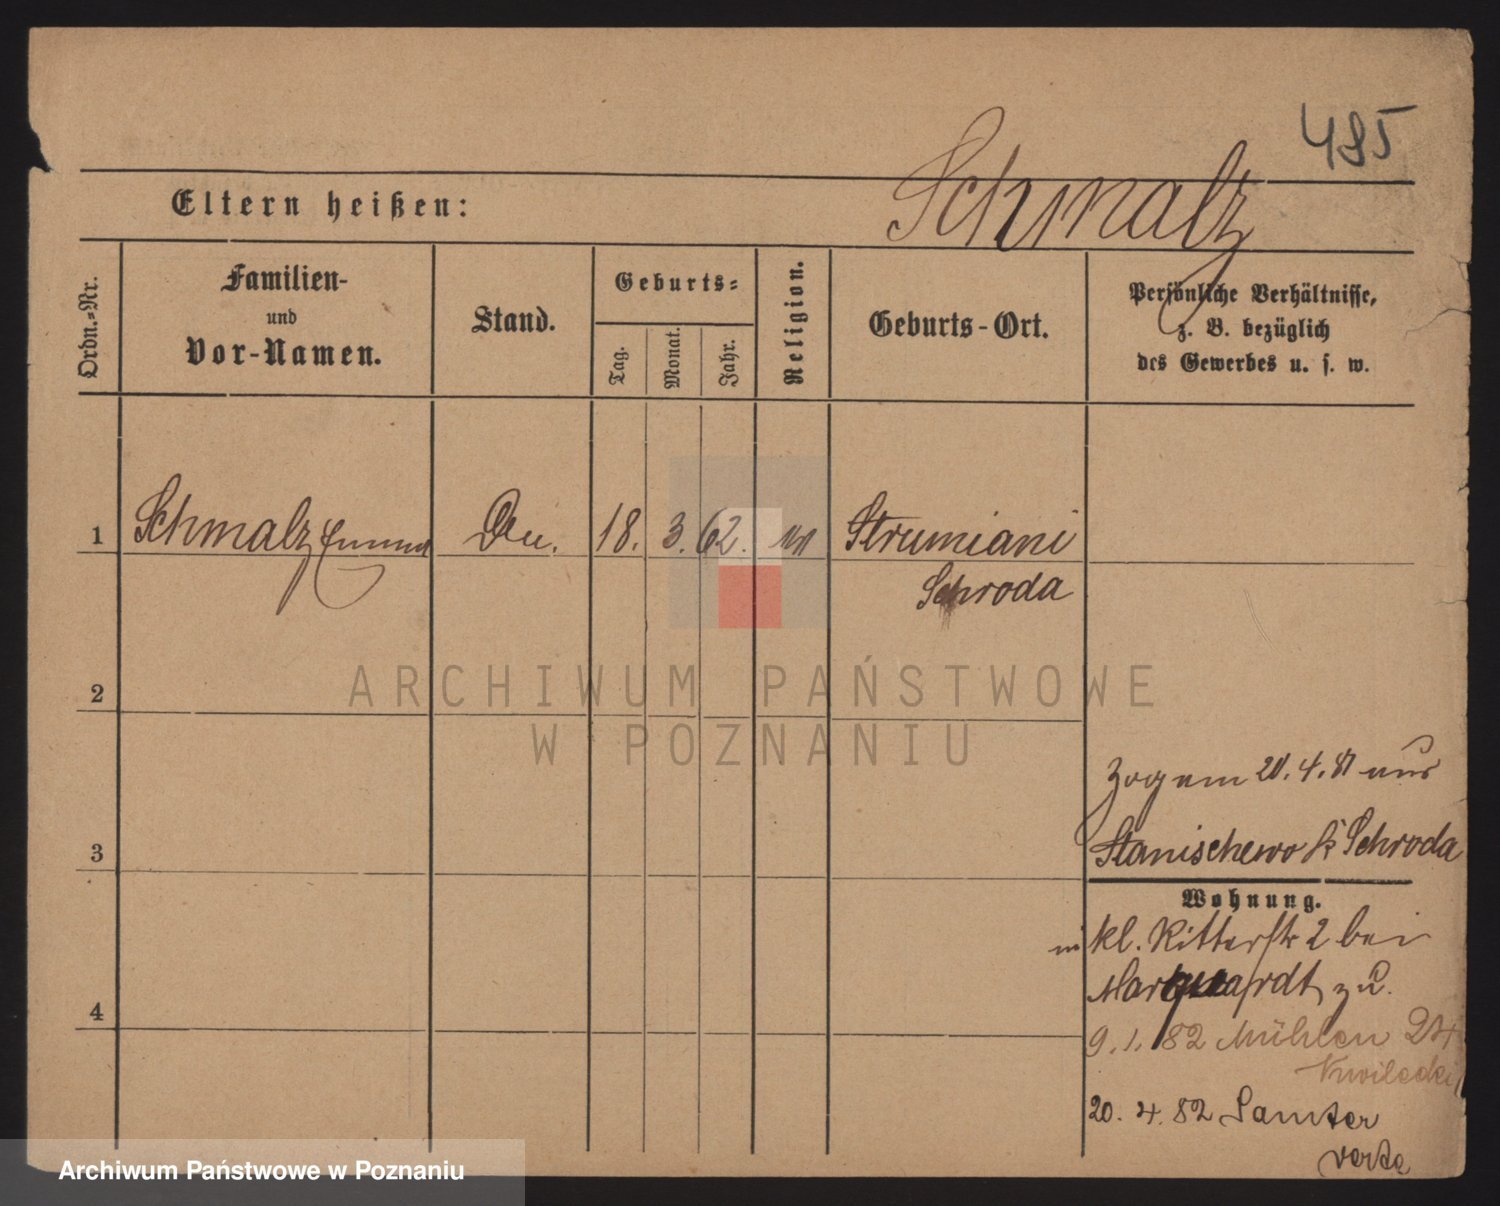 485
Schmalz
Eltern heißen:
Ordn.-Nr.
Familien-
und
Vor-Namen.
Stand.
Geburts-
Tag.
Monat.
Jahr.
Religion.
Geburts-Ort.
Persönliche Verhältnisse,
z. B. bezüglich
des Gewerbes u. s. w.
1 Schmalz Emma 18. 3. 62. Strumiani
Schroda
2
ARCHIWUM PAŃSTWOWE
W POZNANIU
Zog am 20. 4. 81 aus
3
Stanischewo Kr Schroda
Wohnung.
kl. Ritterstr 2 bei
Marquardt zu.
4
9. 1. 82 Mühlen 24
20. 4. 82 Samter
verte
Archiwum Państwowe w Poznaniu